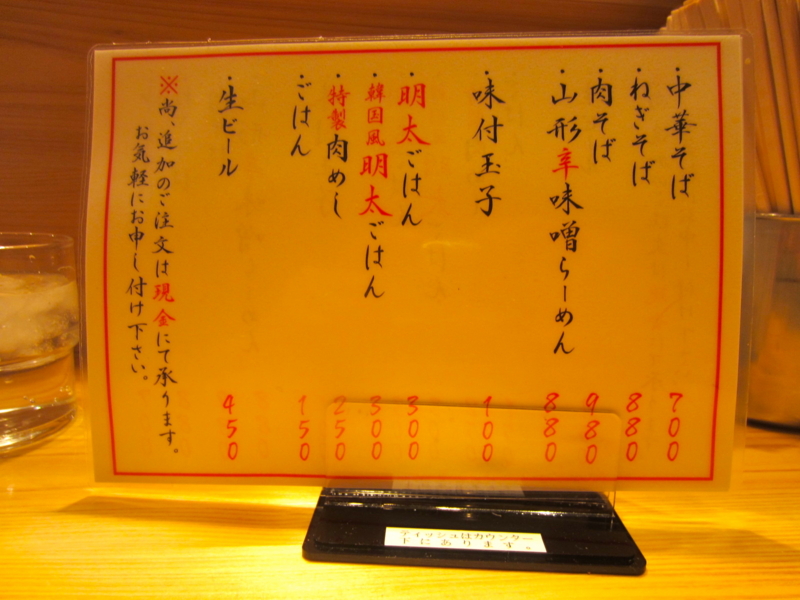 ・中華そば 700
・ねぎそば 880
・肉そば 980
・山形辛味噌らーめん 880
・味付玉子 100
・明太ごはん 300
・韓国風明太ごはん 300
・特製肉めし 250
・ごはん 150
・生ビール 450
※尚、追加のご注文は現金にて承ります。
お気軽にお申し付け下さい。
ティッシュはカウンター
下にあります。